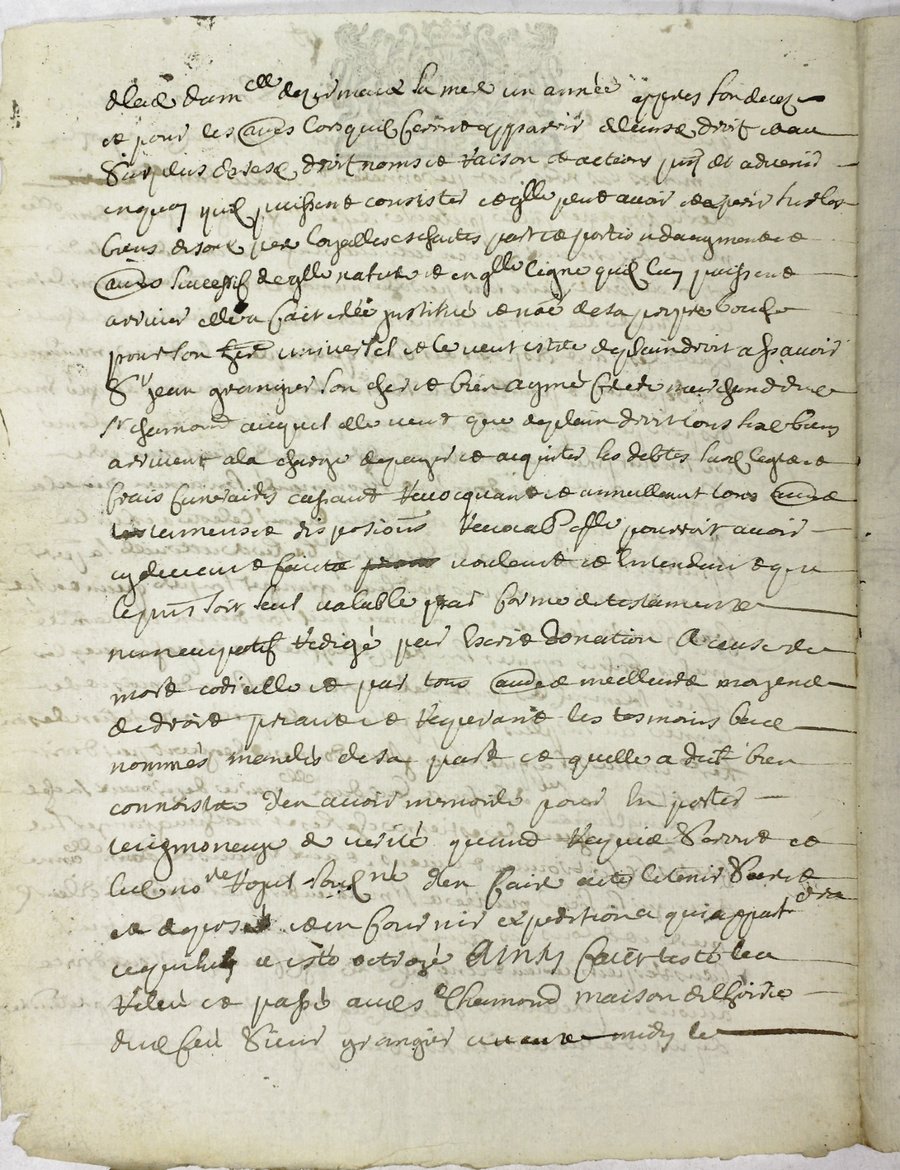 de lad dam^elle de sa mere un année appres son deces
et pour les aues lors quil leur apparoir de leurs droit et au
Surplus de ses droit noms et raison et actions pnt et advenir
en quoy quil puissent consister et qlle peut avoir et a
biens par loyalles eschaites part et portion d augment et
aues successif de qlle nature et en qlle ligne quil luy puissent
arriver elle a fait créé institué et nõé de sa propre bouche
pour son her universel et le veut estre de plain droit a scavoir
S^r jean grangier son cher et bien aymé frere marchand dud
S^t chamond auquel elle veut que de plain droit tous ses biens
arrivent a la charge de payer et acquiter les debtes legat et
frais funeraires cassant revocquant et annullant tous autre
testuments et dispositions qlle pourroit avoir
cy devent faict voulent et entendent que
le pnt soit seul valable par forme de testament
nuncupatif redigé par escrit donation a cause de
mort codicille et par tous autre meilleure moyens
de droit priant et requerant les tesmoins bas
nommés mandés de sa part et quelle a dict bien
connoistre d'en avoir memoire pour en porter
tesigmoneage de verité quand requis seront et
led no^re royal sous^né d'en faire acte le tenir
et en fournir expedition a qui appart^dra
ce qui luy a esté octroyé Ainsy fait testé leu
releu et passé aud S^t Chamond maison
dud feu Sieur grangier avant midy le